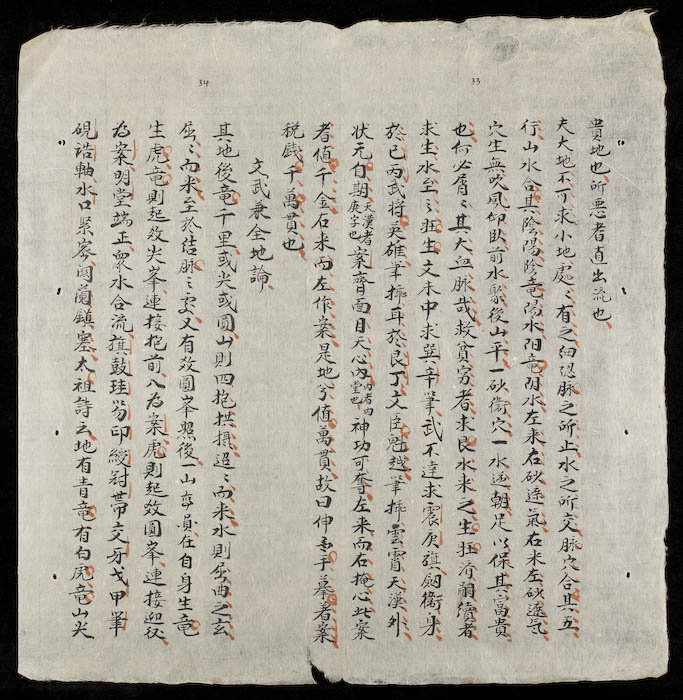 34
33
貴地也所悪者直出流也
夫大地不可求小地處〻有之細認脉之所止水之所交脉穴合其五
行山水合其陰陽陰竜陽水阳竜阴水左来右砂逆氣右来左砂逆气
穴生無吹風仰臥前水聚後山平一砂衛穴一水逆朝足以保其富貴
也何必屑〻其大血脉哉救貧穷者求良水来之生旺済嗣續者
求生水至之旺生文未中求巽辛筆武不達求震庚旗劔衛身
於己丙武将英雄筆插耳於艮丁文臣魁越筆插雲霄天漢外
状元自期天漢者庚字也案齊面目天心内堂也神功可奪左来而右掩心此案
者值千金右来而左作案是地兮值萬貫故曰伸手摹着案
税戯千萬貫也
文武兼全地論
其地後竜千里或尖或圓山則四抱拱摂迢〻而来水則屈曲之玄
屈〻而来至於結脉〻處又有效圓峯照後一山在自身生竜
生虎竜則起效尖峯連接抱前八為案虎則起效圓峯連接迎抱
為案明堂端正衆水合流旗鼓珪笏印綬冠帯交牙戈甲筆
硯誥軸水口禁密関闌鎮塞太祖詩云地有青竜有白虎竜山尖